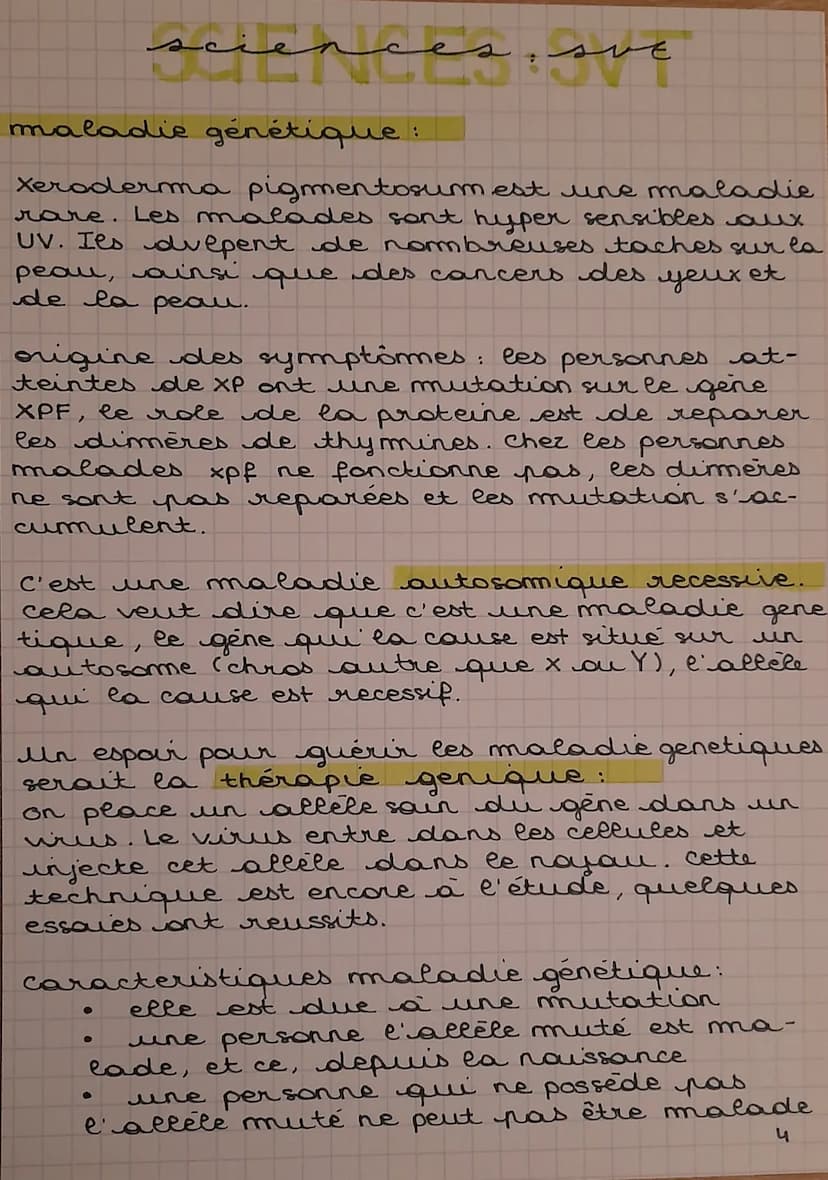 SCIENCES : SVT
sciences : svt
maladie génétique :
Xeroderma pigmentosum est une maladie
rare. Les malades sont hyper sensibles aux
UV. Ils dvlepent de nombreuses taches sur la
peau, ainsi que des cancers des yeux et
de la peau.
origine des symptômes : les personnes at-
teintes de XP ont une mutation sur le gène
XPF, le role de la proteine est de reparer
les dimères de thymines. Chez les personnes
malades xpf ne fonctionne pas, les dimères
ne sont pas reparées et les mutation s'ac-
cumulent.
C'est une maladie autosomique recessive.
Cela veut dire que c'est une maladie gene
tique, le gène qui la cause est situé sur un
autosome (chros autre que X ou Y), l'allèle
qui la cause est recessif.
Un espoir pour guérir les maladie genetiques
serait la thérapie genique :
on place un allèle sain du gène dans un
virus. Le virus entre dans les cellules et
injecte cet allèle dans le noyau. Cette
technique est encore à l'étude, quelques
essaies ont reussits.
caracteristiques maladie génétique :
• elle est due à une mutation
• une personne l'allèle muté est ma-
lade, et ce, depuis la naissance
• une personne qui ne possède pas
l'allèle muté ne peut pas être malade
4